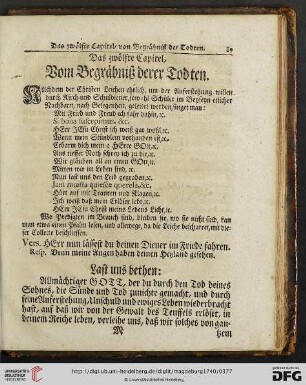 Das zwölfte Capitel, von Begräbniß der Todten. 89
Das zwölfte Capitel,
Vom Begräbniß derer Todten.
Nachdem der Christen Leichen ehrlich, um der Auferstehung willen
durch Kirch- und Schuldiener, sowohl Schüler im Beyseyn etlicher
Nachbarn, nach Gelegenheit, geleitet werden, singet man:
Mit Fried und Freud ich fahr dahin, ꝛc.
Si bona suscepimus, &c.
HErr JEsu Christ ich weiß gar wohl, ꝛc.
Wenn mein Stündlein vorhanden ist, ꝛc.
Erbarm dich mein o HErre GOtt, ꝛc.
Aus tieffer Noth schrey ich zu dir, ꝛc.
Wir gläuben all an einen GOtt, ꝛc.
Mitten wir im Leben sind, ꝛc.
Nun last uns den Leib begraben, ꝛc.
Jam mœsta quiesce querela, &c.
Hört auf mit Trauren und Klagen, ꝛc.
Ich weiß daß mein Erlöser lebt, ꝛc.
HErr JEsu Christ meins Lebens Licht, ꝛc.
Wo Predigten im Brauch sind, bleiben sie, wo sie nicht sind, kan
man etwa einen Psalm lesen, und allewege, da die Leiche bescharret, mit die-
ser Collecte beschliessen.
Vers. HErr nun lässest du deinen Diener im Friede fahren.
Resp. Denn meine Augen haben deinen Heyland gesehen.
Last uns bethen:
Allmächtiger GOTT, der du durch den Tod deines
Sohnes, die Sünde und Tod zunichte gemacht, und durch
seine Auferstehung, Unschuld und ewiges Leben wiederbracht
hast, auf daß wir von der Gewalt des Teuffels erlöset, in
deinem Reiche leben, verleihe uns, daß wir solches von gan-
M tzem
http://digi.ub.uni-heidelberg.de/diglit/magdeburg1740/0377
UNIVERSITÄTS-
BIBLIOTHEK
HEIDELBERG
Gefördert durch die
DFG